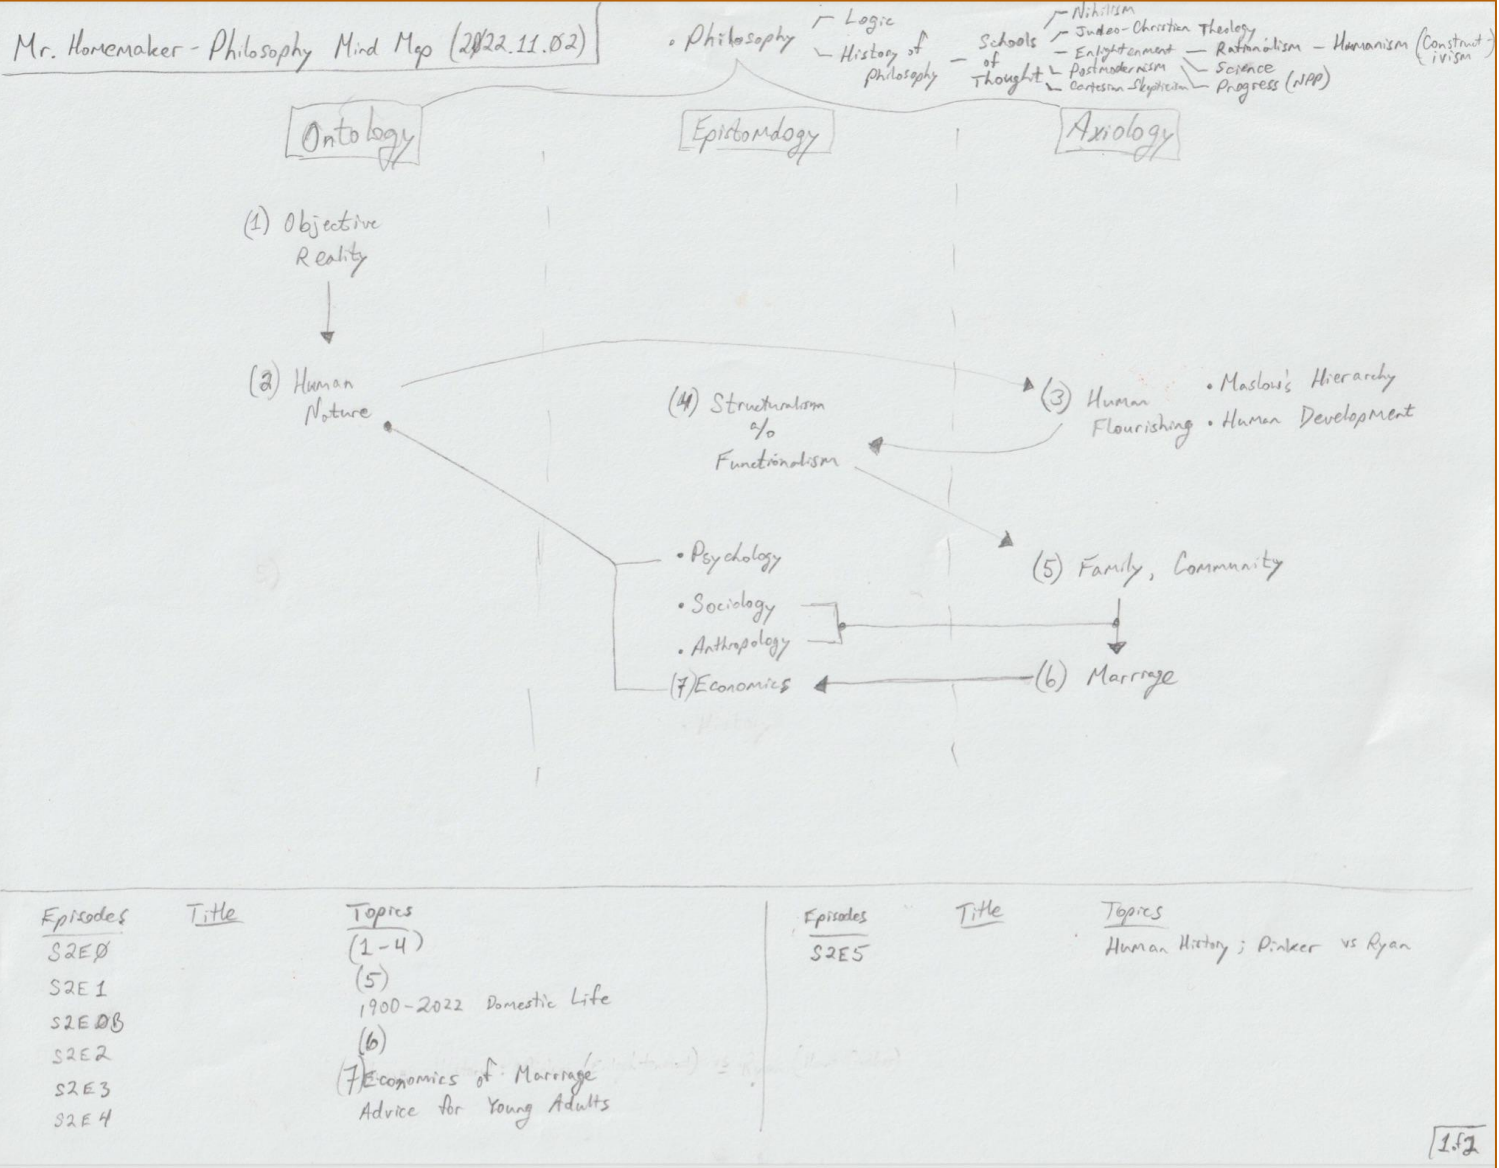 Mr. Homemaker - Philosophy Mind Map (2022.11.02)
• Philosophy
Logic
History of
Philosophy
Schools
of
Thought
Nihilism
Judeo-Christian Theology
Enlightenment - Rationalism - Humanism (Construct-
ivism
Postmodernism
Science
Cartesian Skepticism
Progress (NPP)
Ontology
Epistomology
Axiology
(1) Objective
Reality
(2) Human
Nature
(3) Human
Flourishing
• Maslow's Hierarchy
• Human Development
(4) Structuralism
Functionalism
• Psychology
• Sociology
• Anthropology
(7) Economics
(5) Family, Community
(6) Marriage
• History
Episodes Title Topics
S2E0 (1-4)
S2E1 (5)
1900-2022 Domestic Life
S2E0B
(6)
S2E2
(7) Economics of Marriage
S2E3
Advice for Young Adults
S2E4
Episodes Title Topics
S2E5 Human History; Pinker vs Ryan
1of2